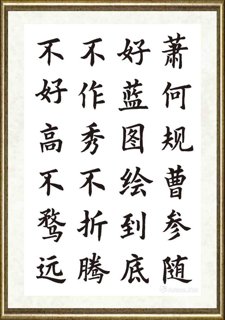 萧何规曹参随
好蓝图绘到底
不作秀不折腾
不好高不骛远